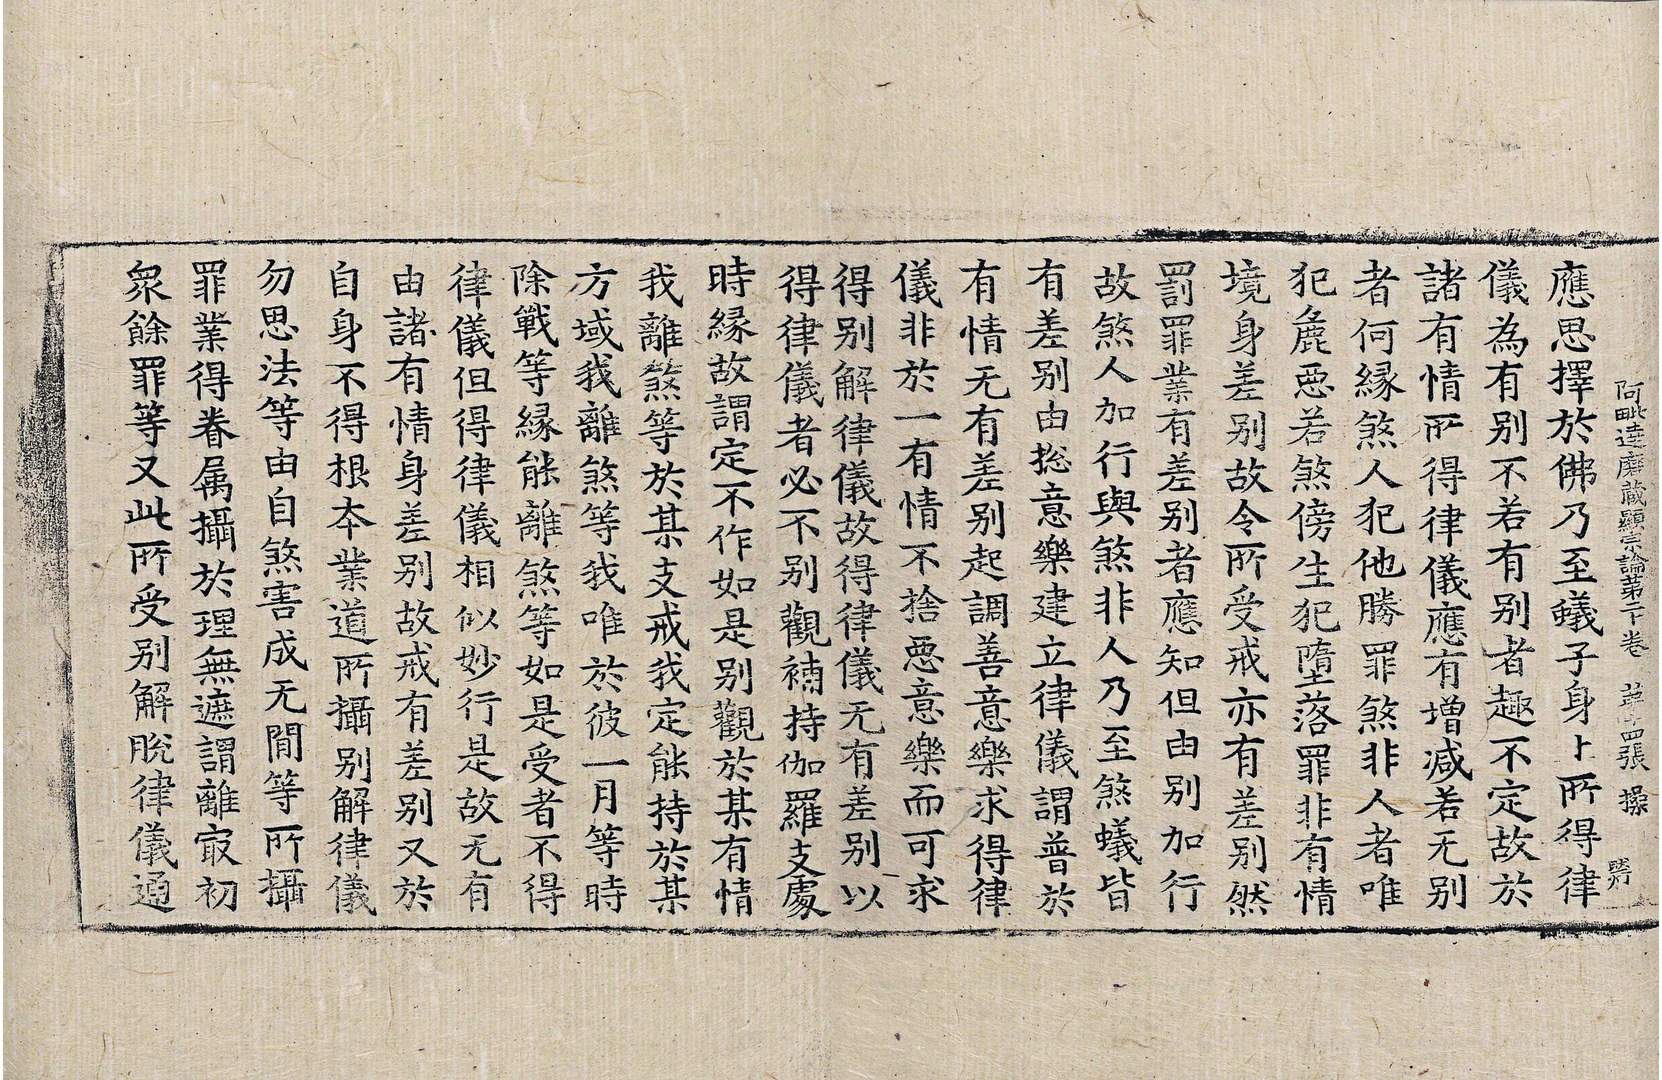 阿毗達磨藏顯宗論第二十卷　第四張　操
應思擇於佛乃至蟻子身上所得律
儀為有别不若有别者趣不定故於
諸有情所得律儀應有增減若无别
者何緣煞人犯他勝罪煞非人者唯
犯麁惡若煞傍生犯墮落罪非有情
境身差别故令所受戒亦有差别然
罰罪業有差别者應知但由别加行
故煞人加行與煞非人乃至煞蟻皆
有差别由揔意樂建立律儀謂普於
有情无有差别起調善意樂求得律
儀非於一有情不捨惡意樂而可求
得别解律儀故得律儀无有差别以
得律儀者必不别觀補特伽羅支處
時緣故謂定不作如是别觀於某有情
我離煞等於某支戒我定能持於某
方域我離煞等我唯於彼一月等時
除戰等緣能離煞等如是受者不得
律儀但得律儀相似妙行是故无有
由諸有情身差别故戒有差别又於
自身不得根本業道所攝别解律儀
勿思法等由自煞害成无間等所攝
罪業得眷属攝於理無遮謂離㝡初
衆餘罪等又此所受别解脫律儀通